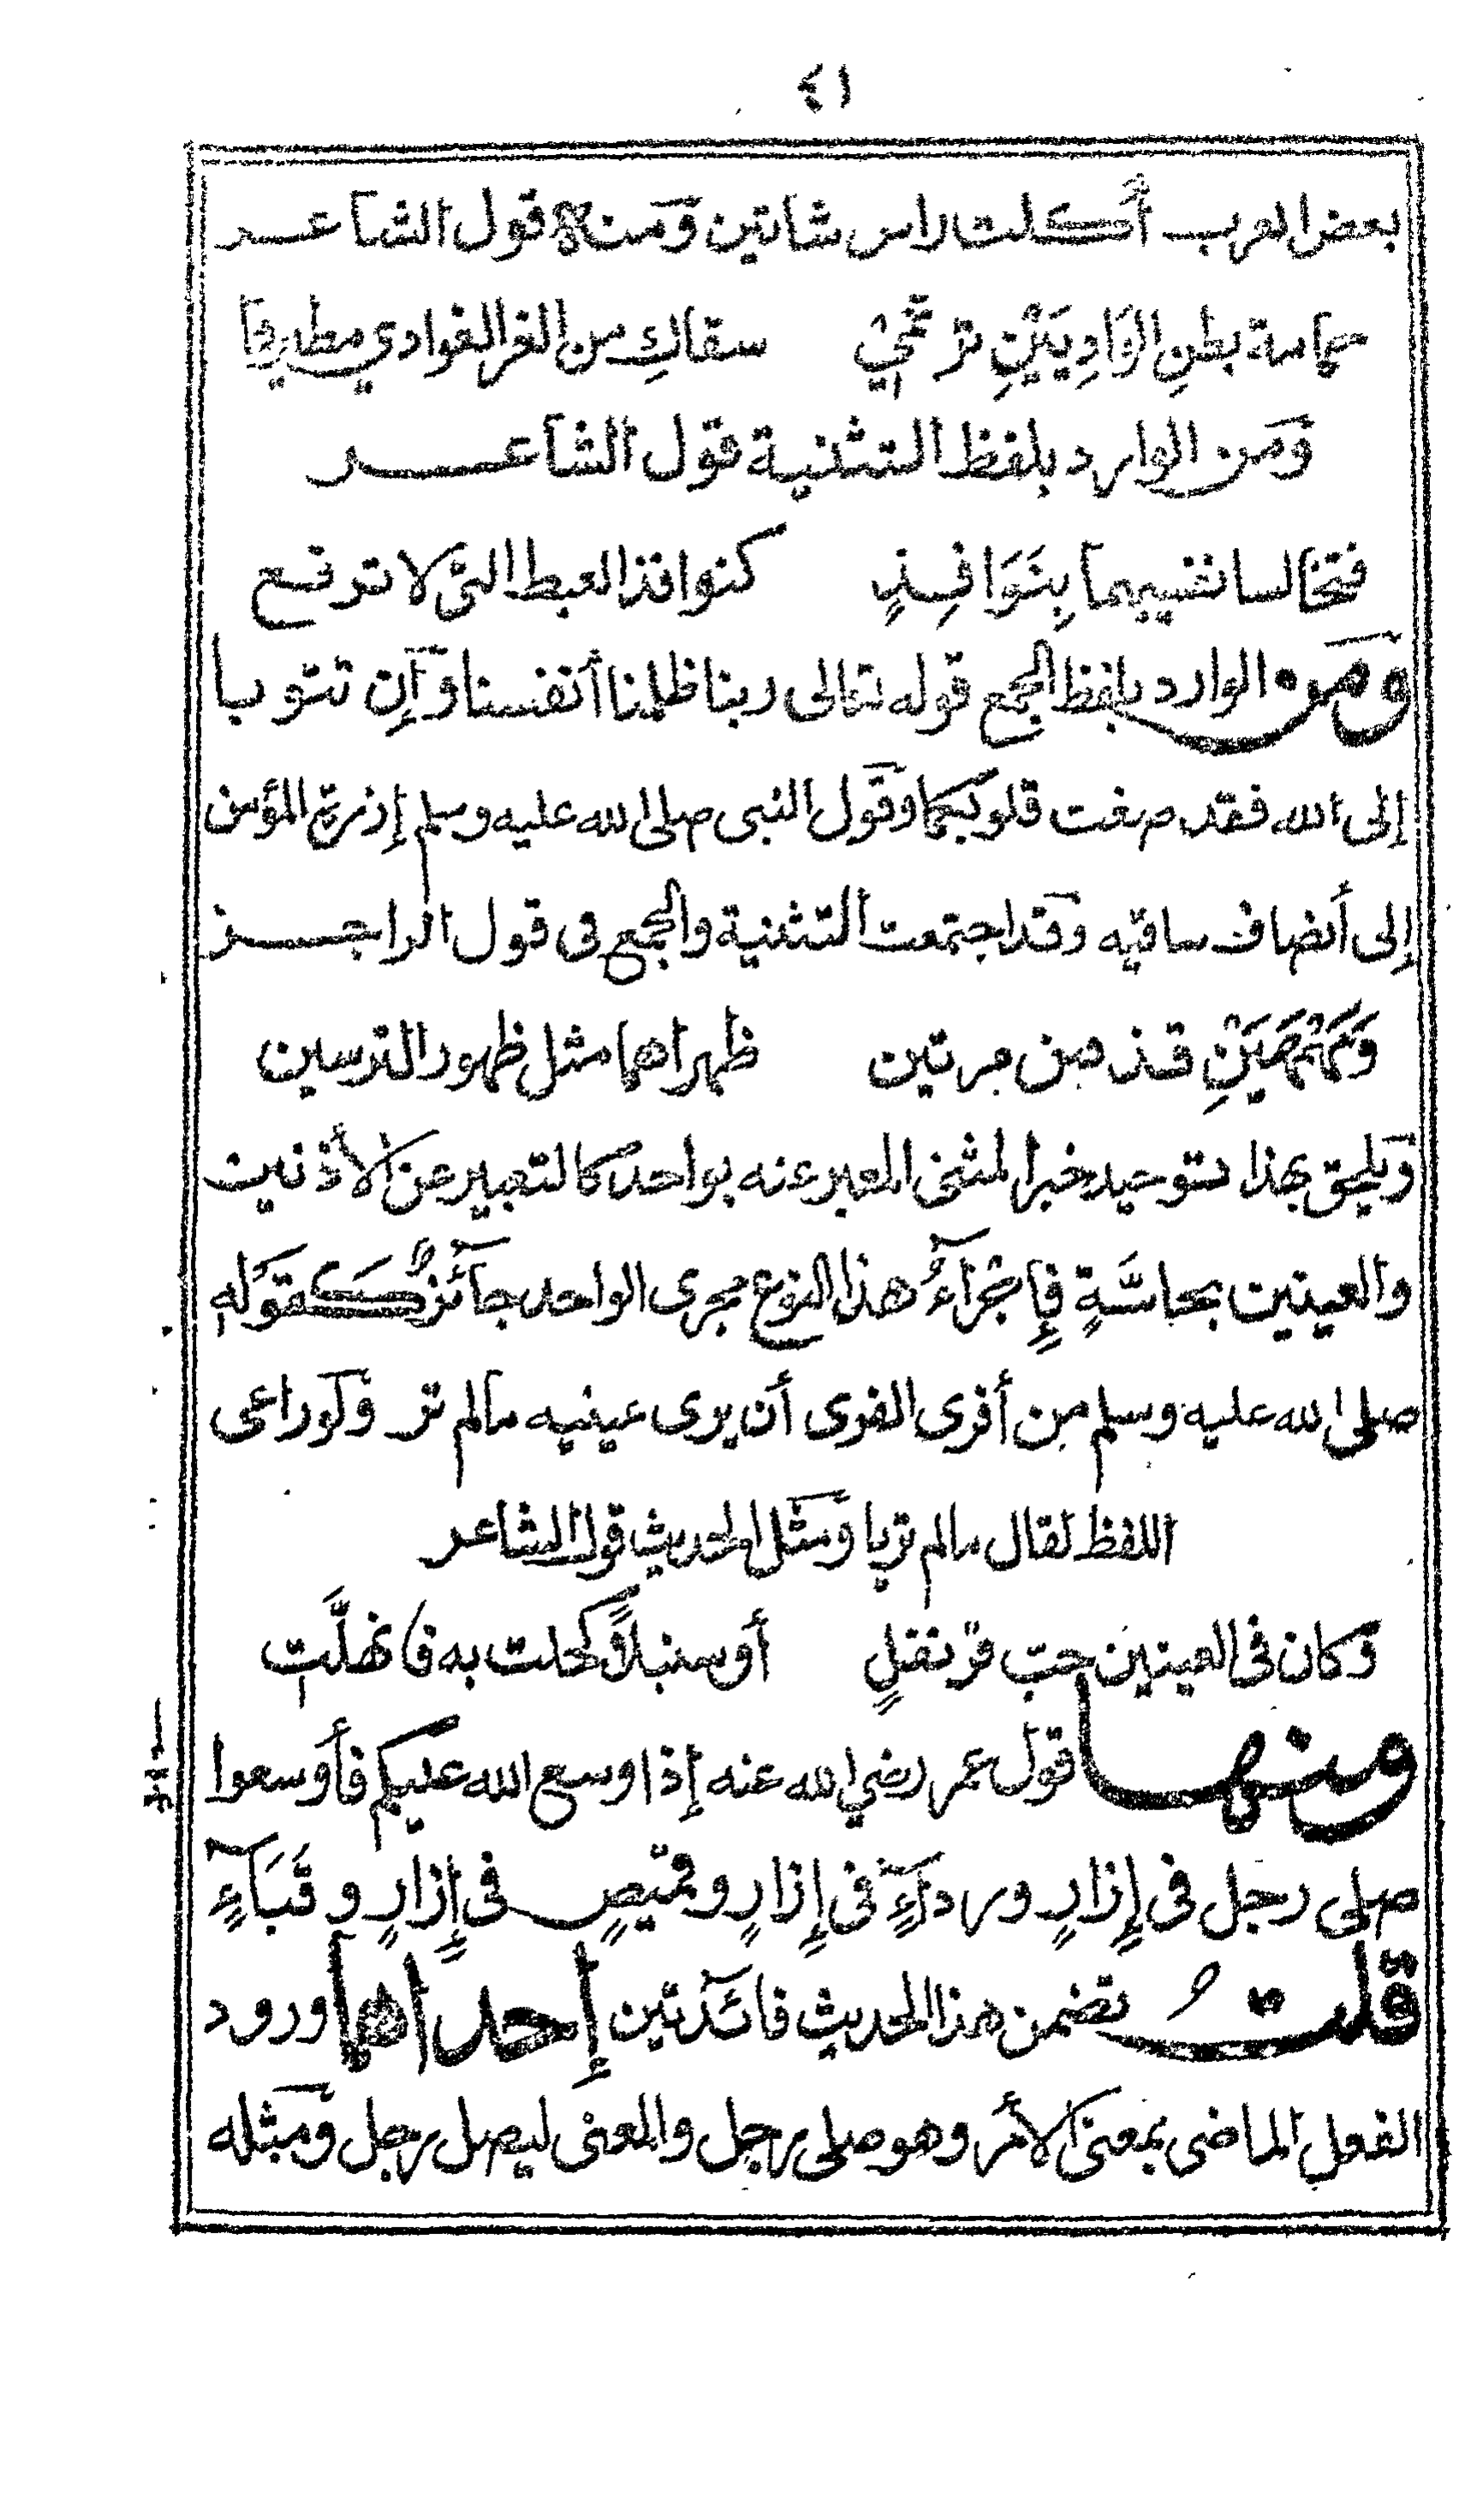 ٤١
بعض العرب أكلت راس شاتين ومنه قول الشاعر
حمامة بطن الوَادِيَيْنِ ترنمي سقاكِ من الغر الغوادي مطيرها
ومن الوارد بلفظ التثنية قول الشاعر
فتخالسا نفسيهما بِنَوَافِذٍ كنوافذ العبط التى لا ترفع
ومن الوارد بلفظ الجمع قوله تعالى ربنا ظلمنا أنفسنا وَإن تتوبا
إلى الله فقد صغت قلوبكما وقول النبى صلى الله عليه وسلم إذرة المؤمن
إلى أنصاف ساقيه وقد اجتمعت التثنية والجمع فى قول الراجز
وَمَهْمَهَيْنِ قذفين مرتين ظهراهما مثل ظهور الترسين
ويلحق بهذا توحيد خبر المثنى المعبر عنه بواحد كالتعبير عن الأذنين
والعينين بحاسَّةٍ فإِجْرَاءُ هذا النوع مجرى الواحد جائزٌ كقوله
صلى الله عليه وسلم من أفرى الفرى أن يرى عينيه مالم تر ولو راعى
اللفظ لقال مالم تريا ومثل الحديث قول الشاعر
وكان فى العينين حبّ قرنفلٍ أو سنبلاً كحلت به فانهلَّت
ومنها قول عمر رضي الله عنه إذا وسع الله عليكم فأوسعوا
صلى رجل فى إِزارٍ ورداءٍ فى إِزارٍ وقميصٍ فى إِزارٍ وقَبَاءٍ
قلتُ تضمن هذا الحديث فائدتين إحداهما ورود
الفعل الماضى بمعنى الأمر وهو صلى رجل والمعنى ليصل رجل ومثله